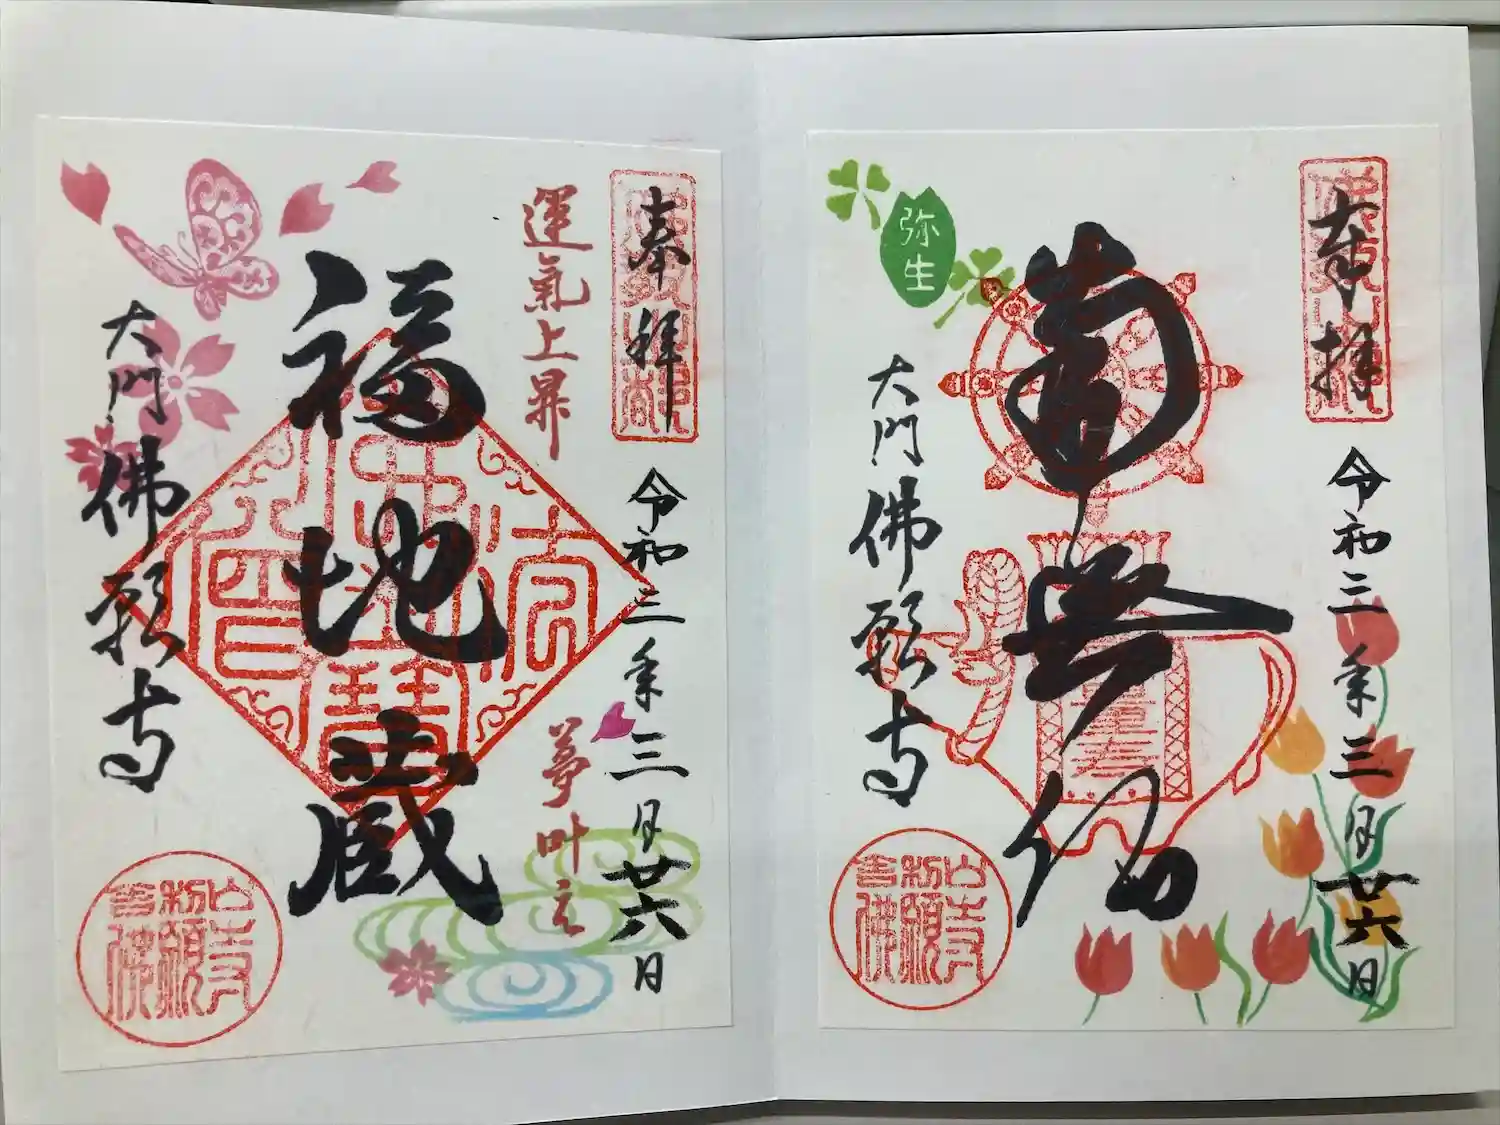 奉拝
令和三年三月廿六日
南無仏
弥生
大門佛願寺
奉拝
令和三年三月廿六日
運氣上昇
夢叶え
福地蔵
大門佛願寺